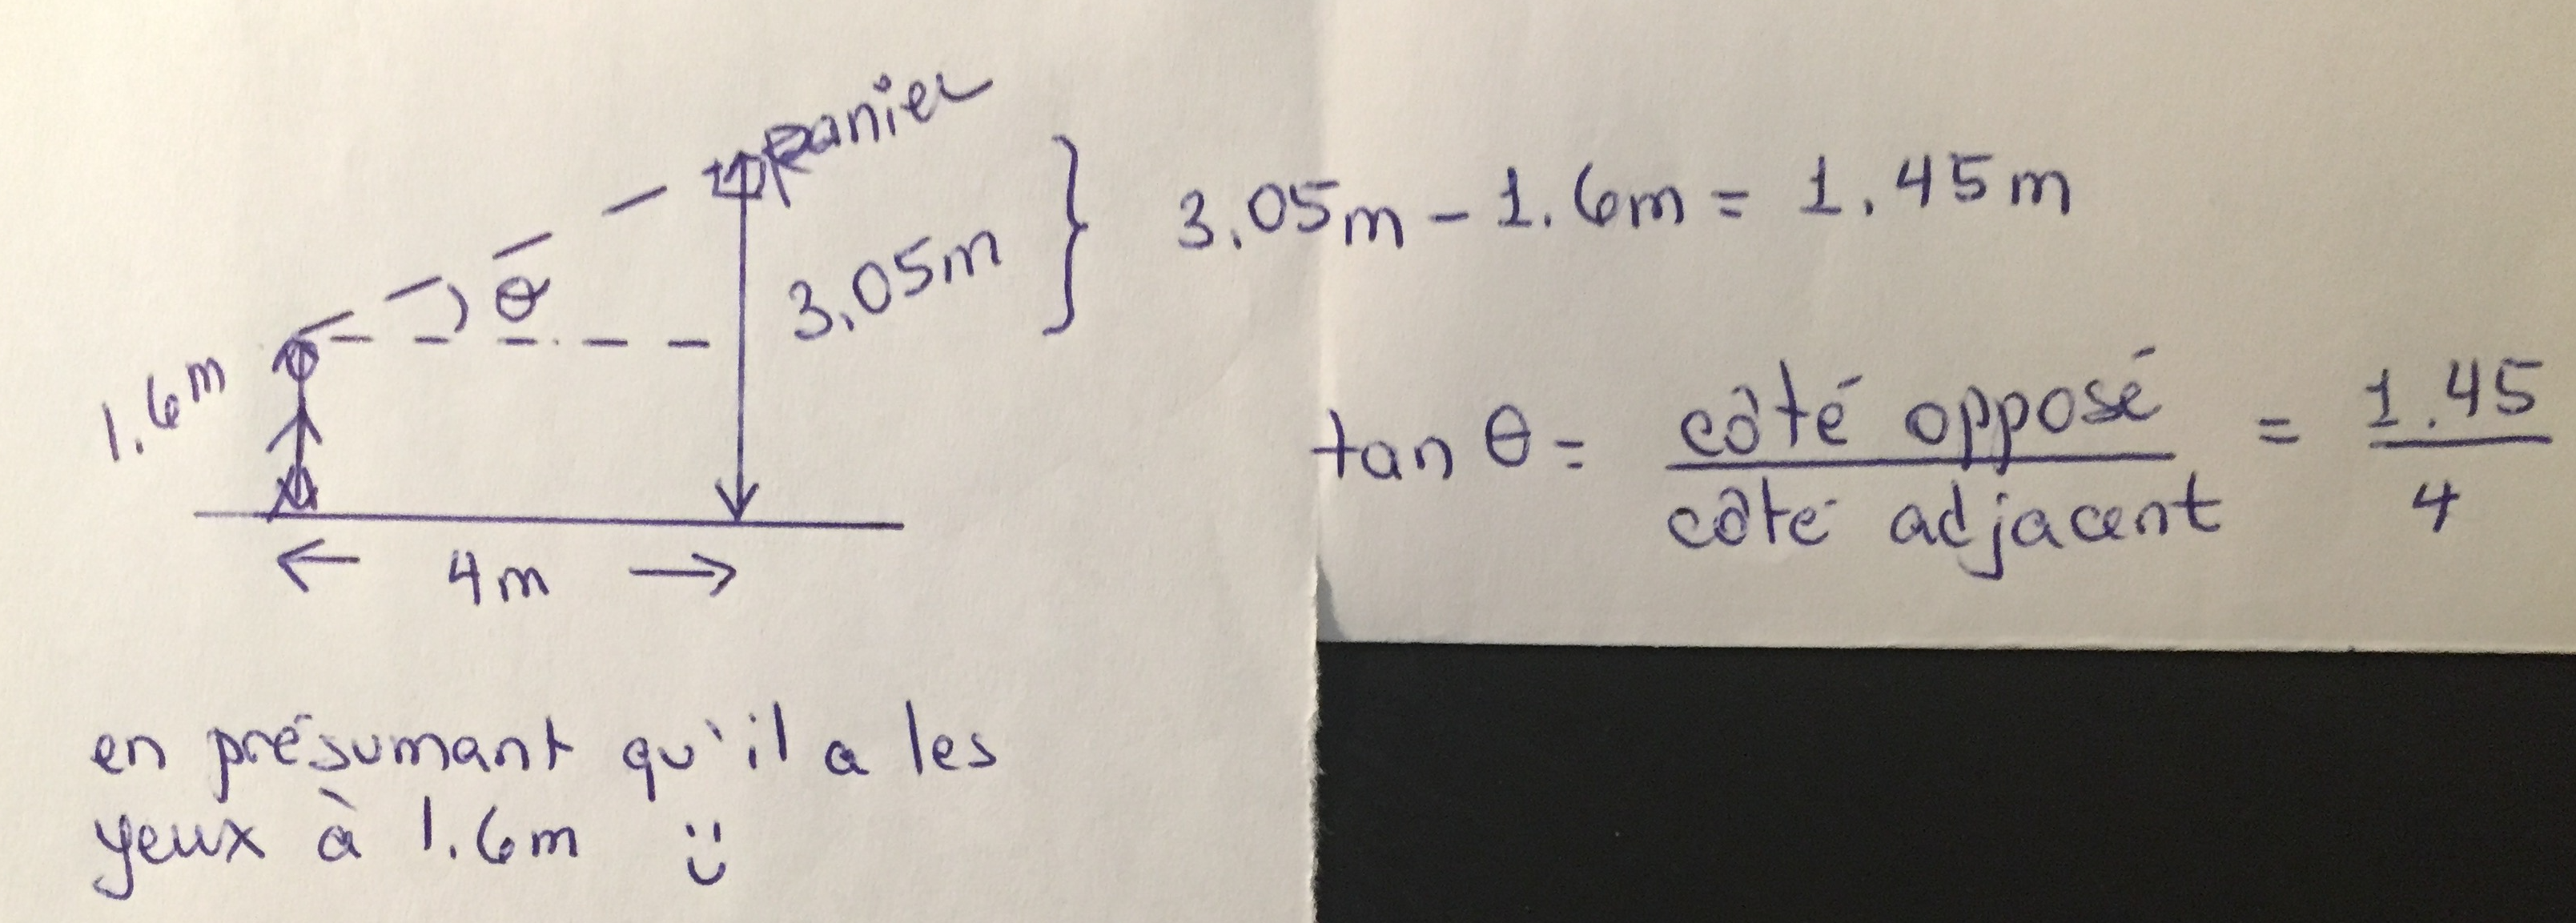 panier
3.05m
θ
1.6m
4m
en présumant qu'il a les
yeux à 1.6m
3.05m - 1.6m = 1.45m
tan θ = côté opposé / côté adjacent = 1.45 / 4